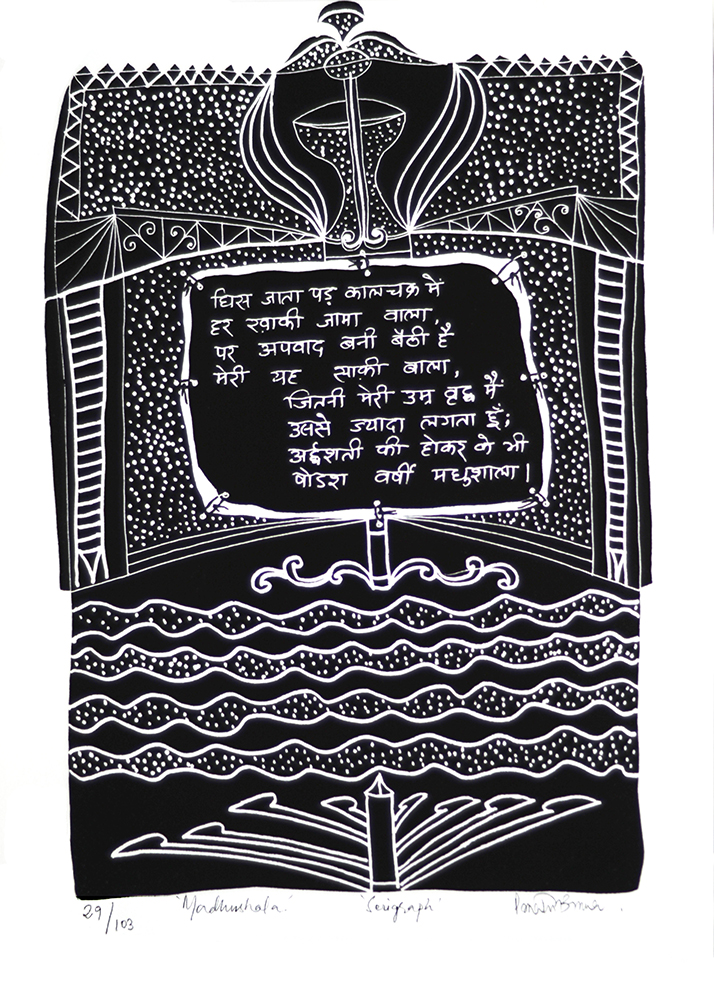 घिस जाता पड़ कालचक्र में
हर खाकी जामा वाला,
पर अपवाद बनी बैठी है
मेरी यह साक़ी बाला,
जितनी मेरी उम्र वृद्ध मैं
उससे ज्यादा लगता हूँ;
अर्द्धशती की होकर के भी
षोडश वर्षी मधुशाला।
29/103 'Madhushala' 'Serigraph'